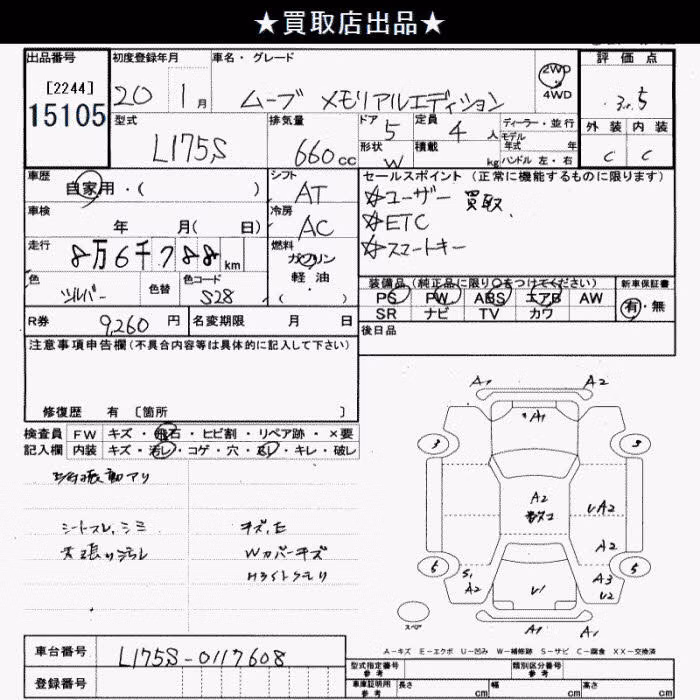 ★買取店出品★
出品番号 初度登録年月 車名・グレード 評価点
[2244] 2WD
15105 20 1月 ムーブ メモリアルエディション 4WD 3.5
型式 排気量 ドア 定員 ディーラー・並行 外装 内装
L175S 660cc 5 4人 モデル年式 年 C C
形状 W 積載 kg ハンドル 左・右
車歴 シフト セールスポイント(正常に機能するものに限ります)
自家用・( ) AT ☆ユーザー買取
車検 冷房 ☆ETC
年 月( 日) AC ☆スマートキー
走行 燃料
8万6千788km ガソリン
色 色替 色コード 軽・油 装備品(純正品に限り○をつけてください) 新車保証書
シルバー S28 ( ) PS PW ABS エアB AW 有・無
R券 9,260円 名変期限 月 日 SR ナビ TV カワ
注意事項申告欄(不具合内容等は具体的に記入して下さい) 後日品
修復歴 有 [箇所 ]
検査員 FW キズ・飛石・ヒビ割・リペア跡・×要
記入欄 内装 キズ・汚レ・コゲ・穴・キレ・破レ
振動アリ
シートスレ、シミ キズ、E
天張り汚レ Wカバーキズ
Hライトクモリ
A1 A2
A1
3 3
A2 UA2
A2
5 5
S1 A2 U1 A3 U2
A1 A1
スペア
A-キズ E-エクボ U-凹み W-補修跡 S-サビ C-腐食 XX-交換済
車台番号 L175S-0117608
型式指定番号 参考 類別区分番号 参考
登録番号 車庫証明用 参考 長さ cm 幅 cm 高さ cm